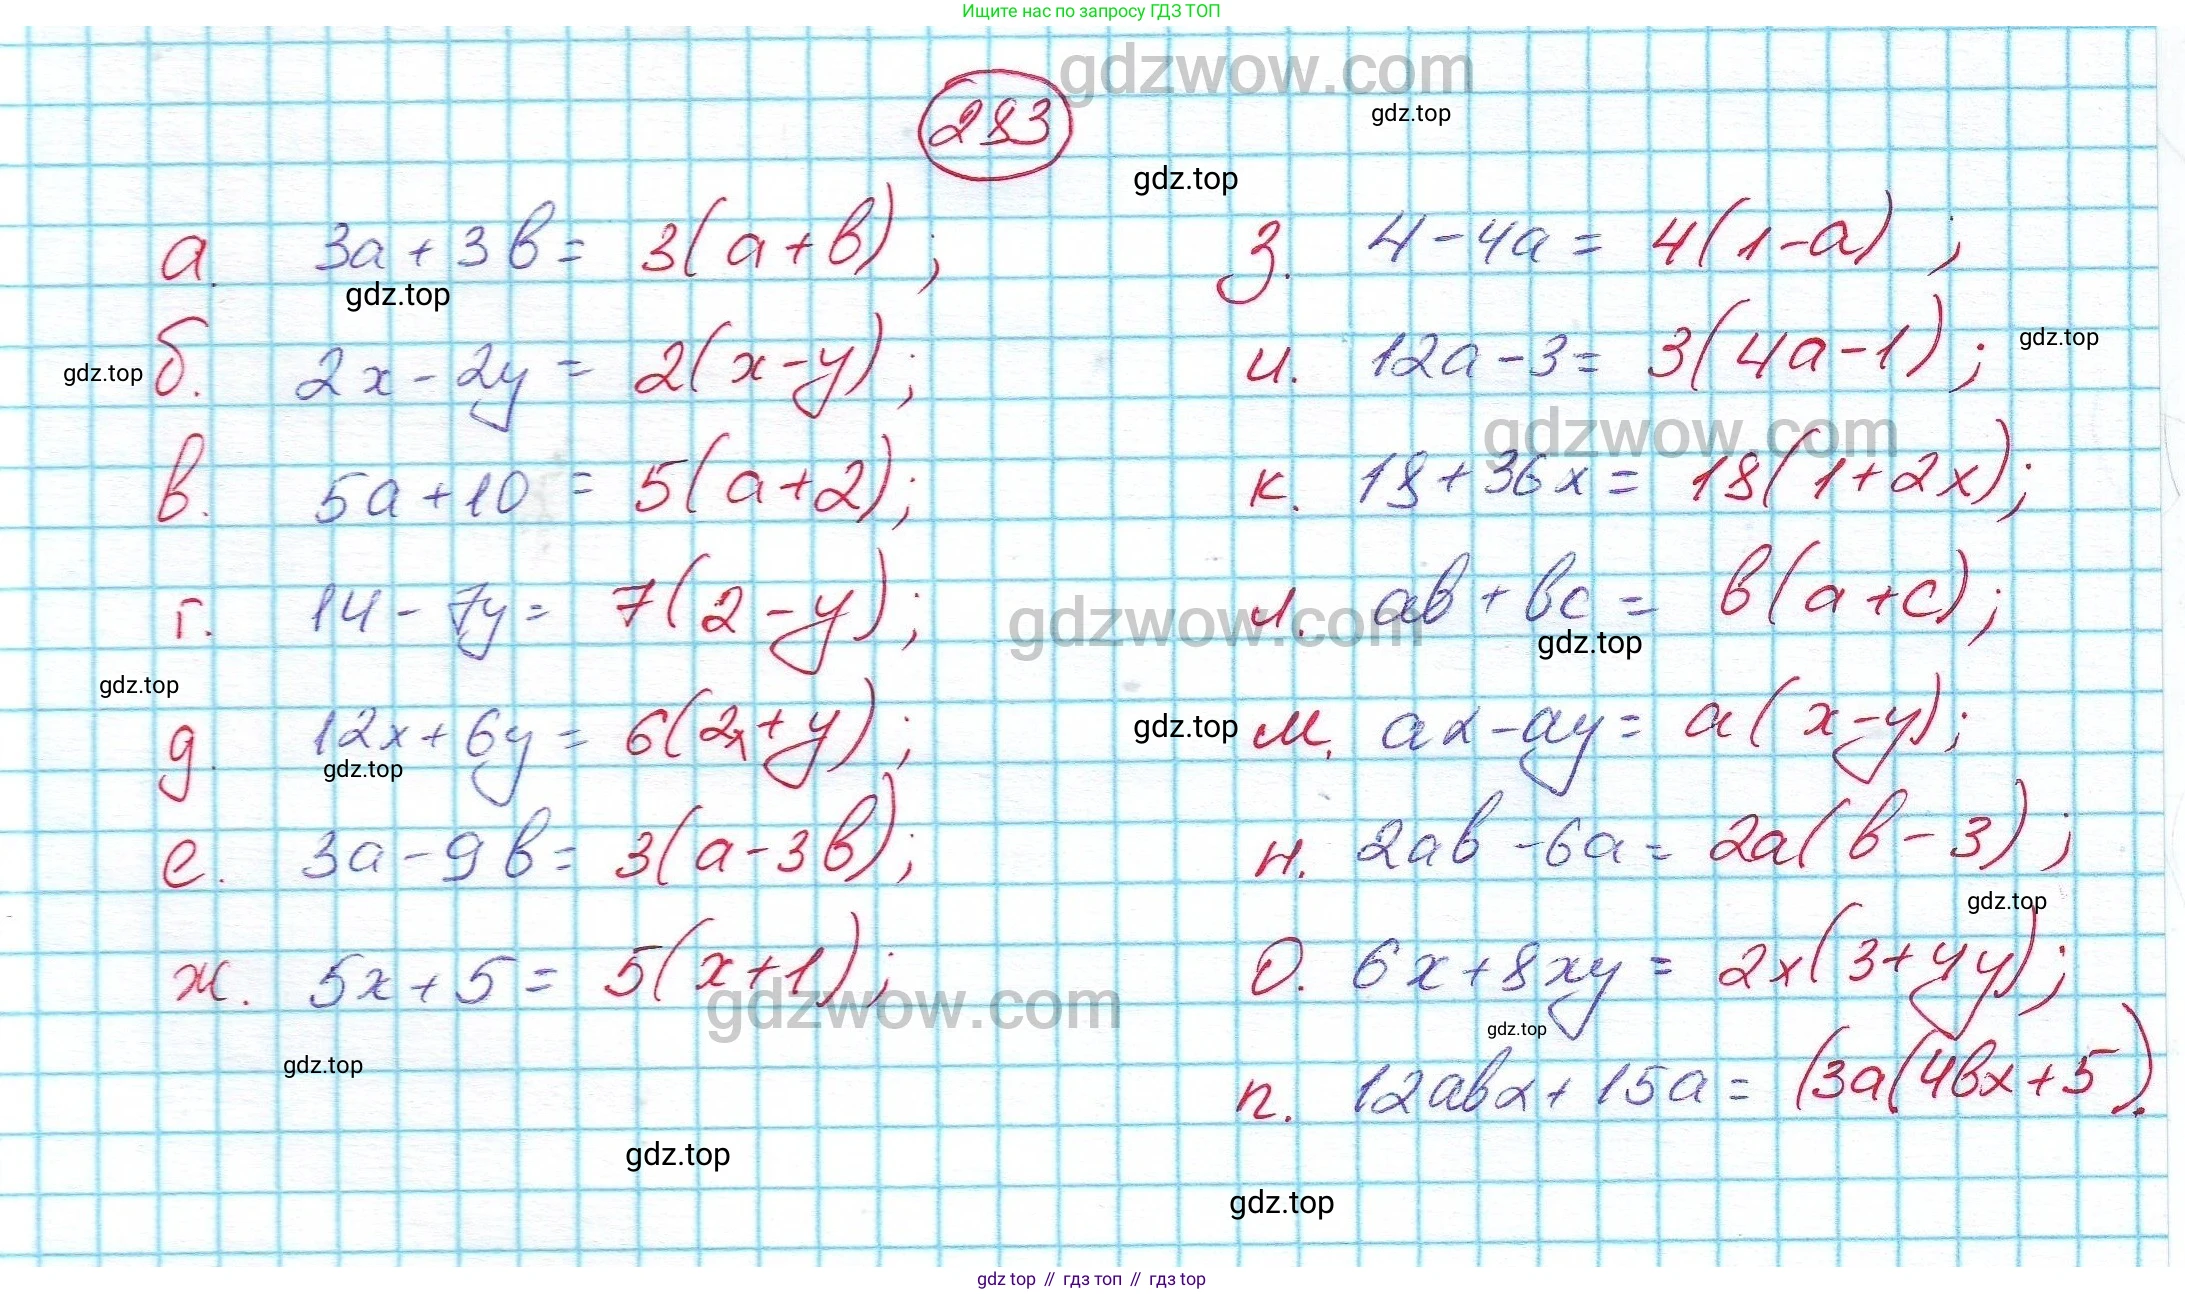 Ищите нас по запросу ГДЗ ТОП
gdzwow.com
283
gdz.top
gdz.top
а. 3a + 3b = 3(a + b);
gdz.top
б. 2x - 2y = 2(x - y);
gdz.top
в. 5a + 10 = 5(a + 2);
г. 14 - 7y = 7(2 - y);
gdz.top
д. 12x + 6y = 6(2x + y);
gdz.top
е. 3a - 9b = 3(a - 3b);
ж. 5x + 5 = 5(x + 1);
gdzwow.com
gdz.top
gdz.top
з. 4 - 4a = 4(1 - a);
и. 12a - 3 = 3(4a - 1);
gdz.top
gdzwow.com
к. 18 + 36x = 18(1 + 2x);
л. ab + bc = b(a + c);
gdzwow.com
gdz.top
м. ax - ay = a(x - y);
gdz.top
н. 2ab - 6a = 2a(b - 3);
gdz.top
о. 6x + 8xy = 2x(3 + 4y);
gdz.top
п. 12abx + 15a = (3a(4bx + 5).
gdz.top
gdz top // гдз топ // гдз top